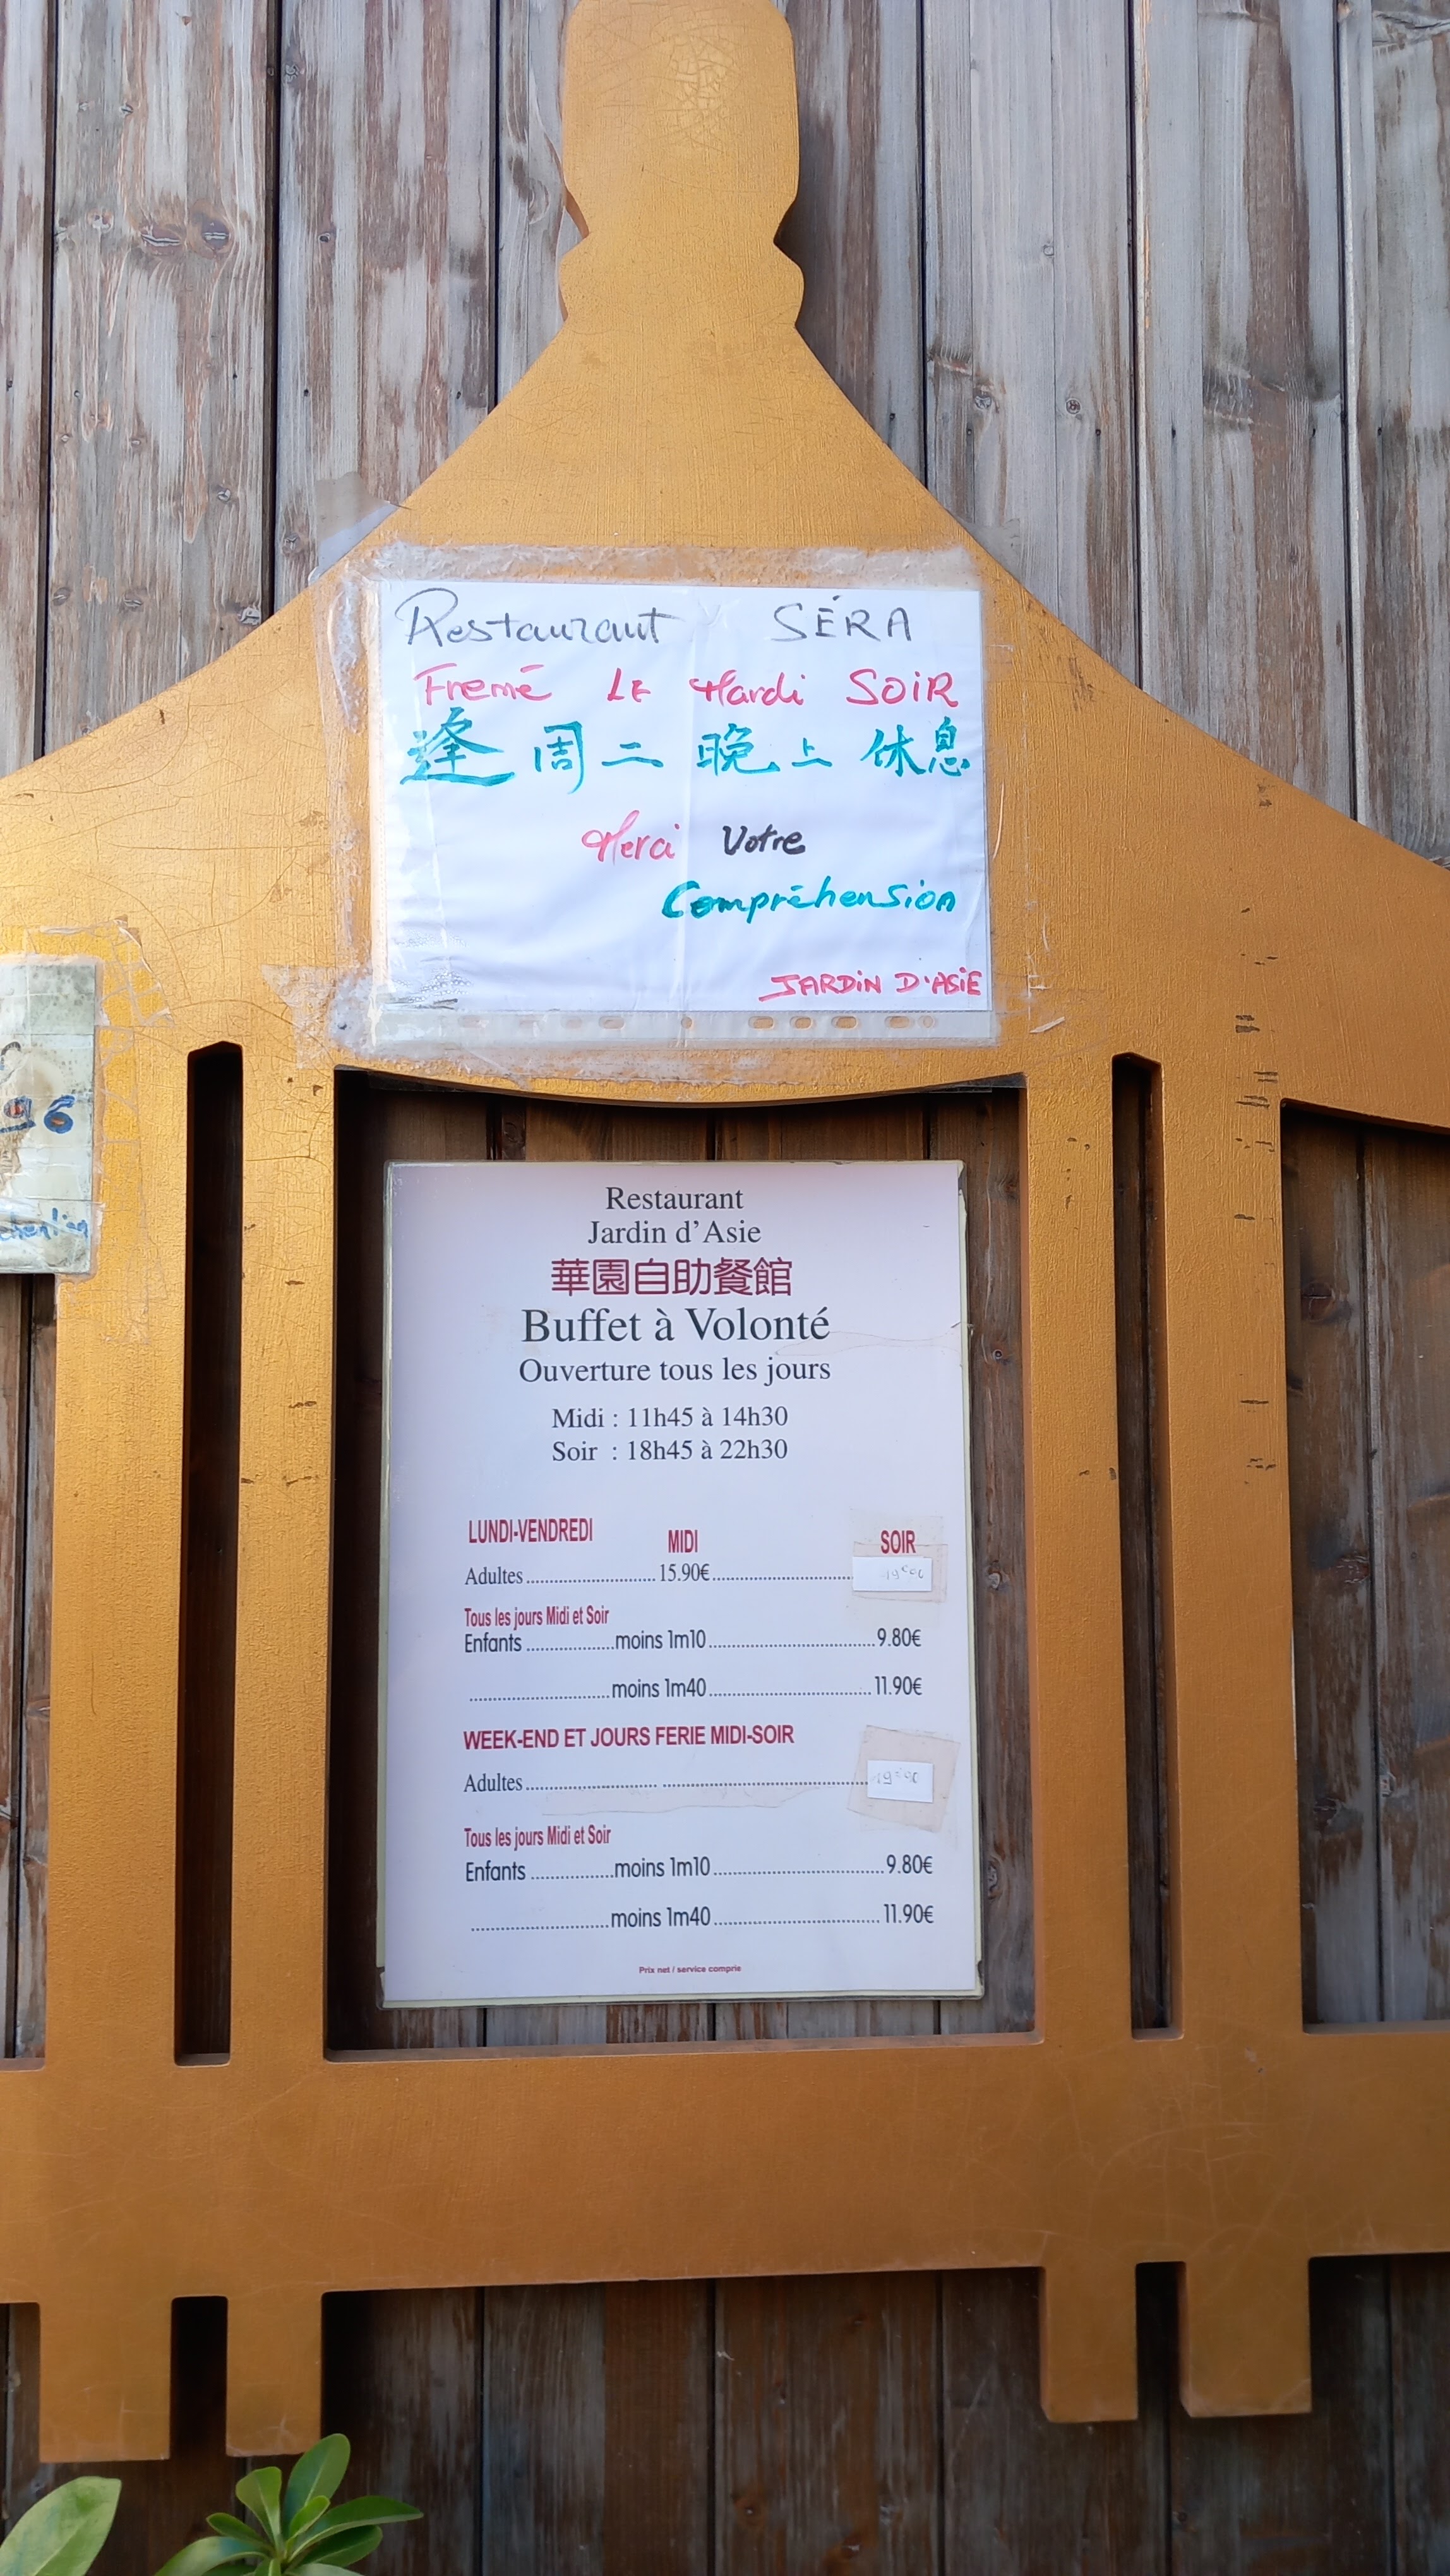 Restaurant SERA
Fremé LE Mardi SOiR
逢周二晚上休息
Merci Votre
Compréhension
JARDiN D'ASiE
96
Restaurant
Jardin d'Asie
華園自助餐館
Buffet à Volonté
Ouverture tous les jours
Midi : 11h45 à 14h30
Soir : 18h45 à 22h30
LUNDI-VENDREDI MIDI SOIR
Adultes............................15.90€..............................
Tous les jours Midi et Soir
Enfants ...................moins 1m10....................................9.80€
..............................moins 1m40...................................11.90€
WEEK-END ET JOURS FERIE MIDI-SOIR
Adultes............................ ............................................
Tous les jours Midi et Soir
Enfants ..................moins 1m10.....................................9.80€
..............................moins 1m40.................................... 11.90€
Prix net / service comprie